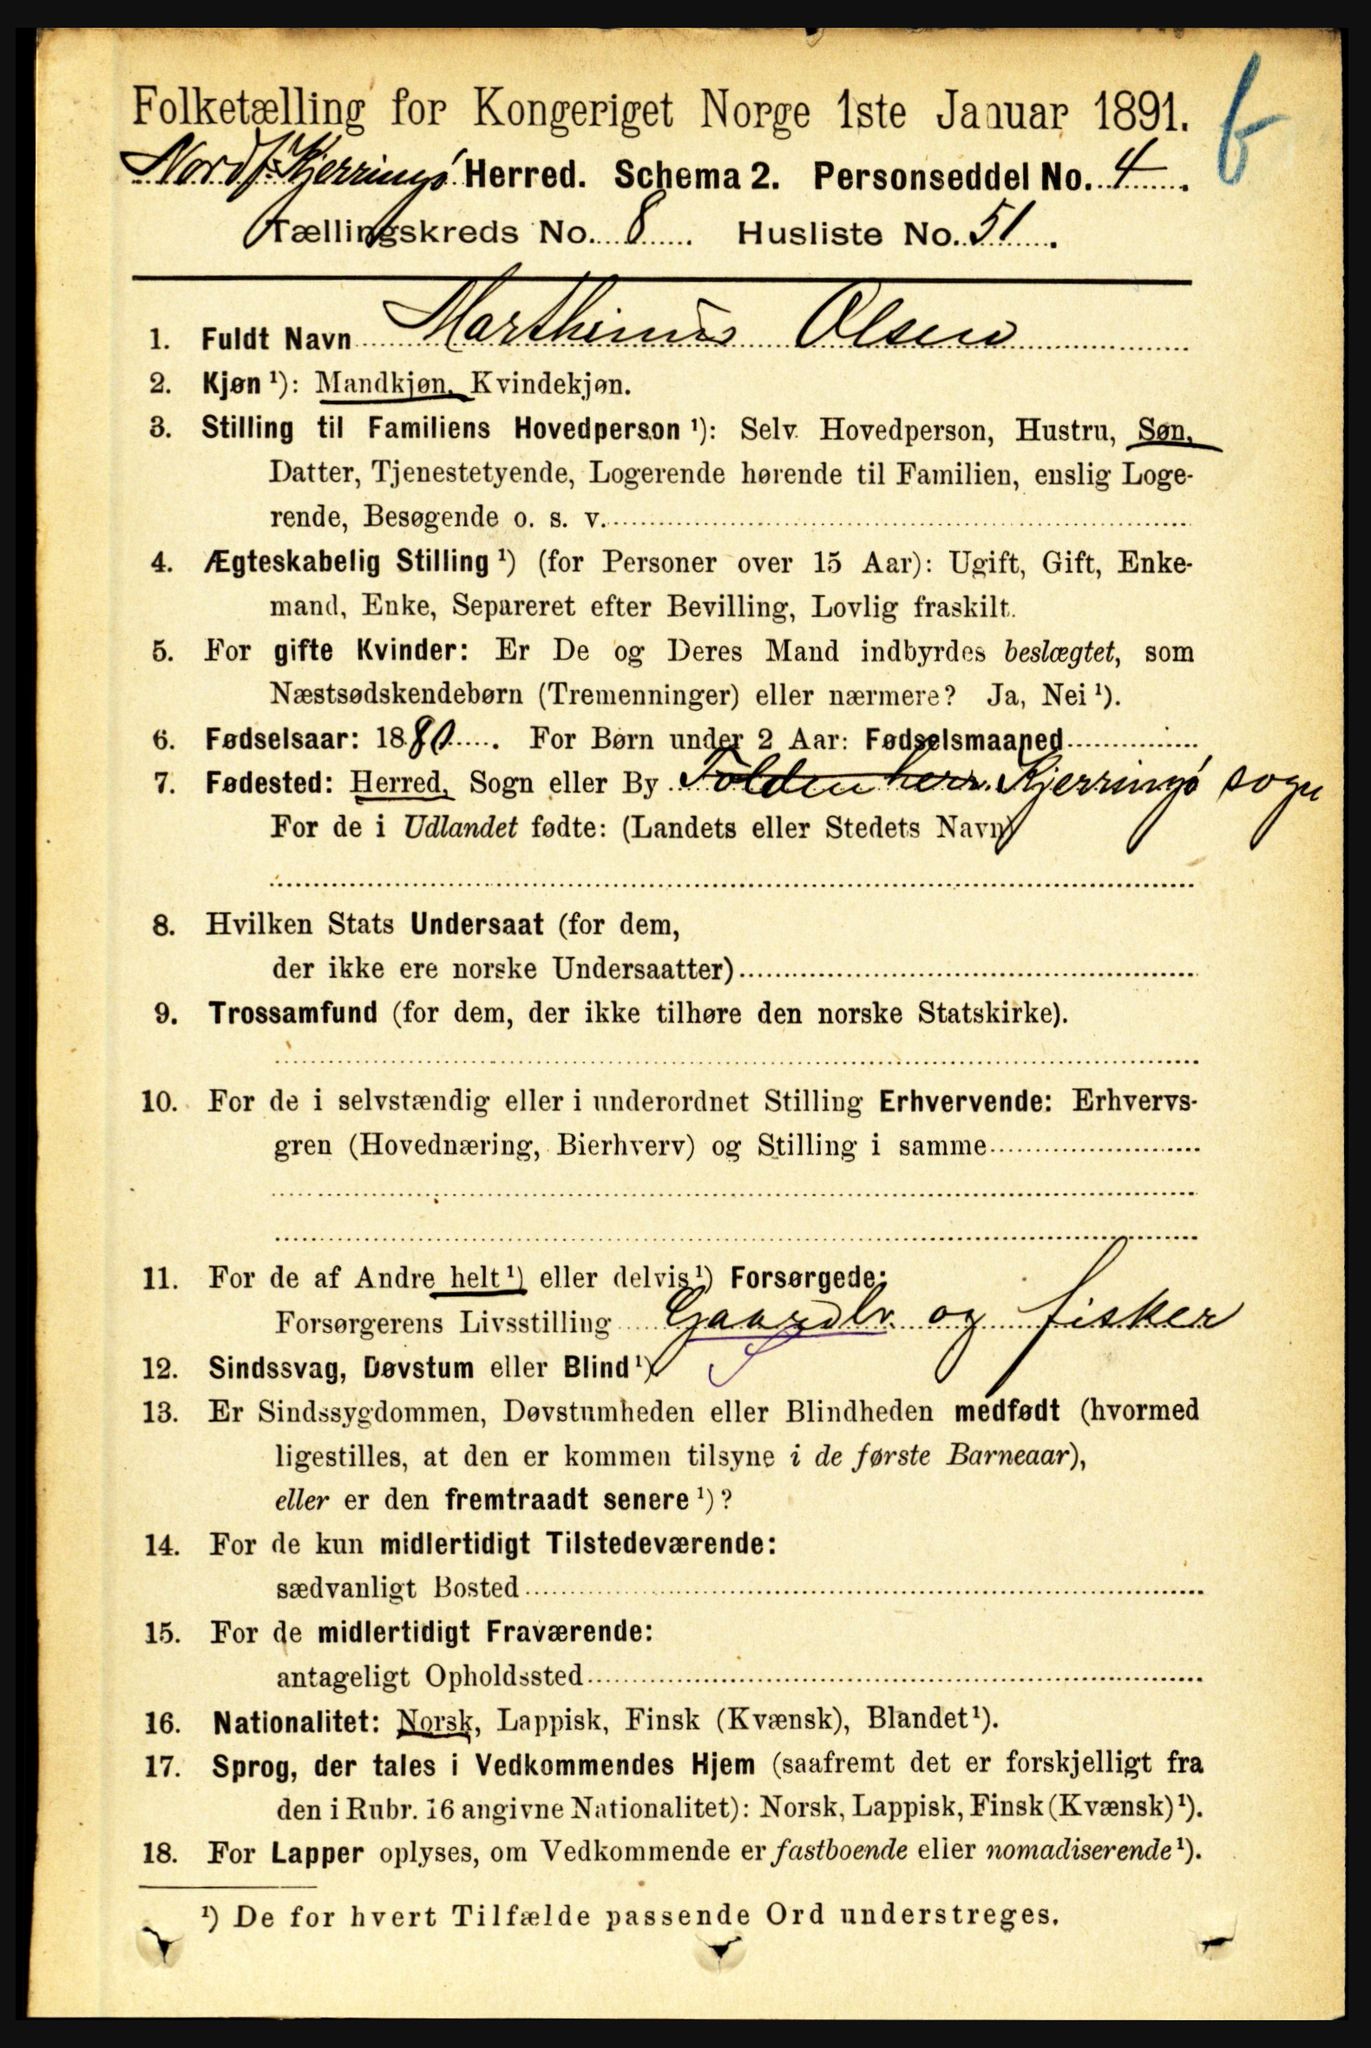 Folketælling for Kongeriget Norge 1ste Januar 1891.
6
Nordf. Kjerringø Herred. Schema 2. Personseddel No. 4.
Tællingskreds No. 8. Husliste No. 51.
1. Fuldt Navn Marthinus Olsen
2. Kjøn ¹): Mandkjøn, Kvindekjøn.
3. Stilling til Familiens Hovedperson ¹): Selv Hovedperson, Hustru, Søn,
Datter, Tjenestetyende, Logerende hørende til Familien, enslig Loge-
rende, Besøgende o. s. v.
4. Ægteskabelig Stilling ¹) (for Personer over 15 Aar): Ugift, Gift, Enke-
mand, Enke, Separeret efter Bevilling, Lovlig fraskilt.
5. For gifte Kvinder: Er De og Deres Mand indbyrdes beslægtet, som
Næstsødskendebørn (Tremenninger) eller nærmere? Ja, Nei ¹).
6. Fødselsaar: 1880. For Børn under 2 Aar: Fødselsmaaned
7. Fødested: Herred, Sogn eller By Folden herr. Kjerringø sogn
For de i Udlandet fødte: (Landets eller Stedets Navn)
8. Hvilken Stats Undersaat (for dem,
der ikke ere norske Undersaatter)
9. Trossamfund (for dem, der ikke tilhøre den norske Statskirke).
10. For de i selvstændig eller i underordnet Stilling Erhvervende: Erhvervs-
gren (Hovednæring, Bierhverv) og Stilling i samme
11. For de af Andre helt ¹) eller delvis ¹) Forsørgede:
Forsørgerens Livsstilling Gaardbr. og fisker
12. Sindssvag, Døvstum eller Blind ¹)
13. Er Sindssygdommen, Døvstumheden eller Blindheden medfødt (hvormed
ligestilles, at den er kommen tilsyne i de første Barneaar),
eller er den fremtraadt senere ¹)?
14. For de kun midlertidigt Tilstedeværende:
sædvanligt Bosted
15. For de midlertidigt Fraværende:
antageligt Opholdssted
16. Nationalitet: Norsk, Lappisk, Finsk (Kvænsk), Blandet ¹).
17. Sprog, der tales i Vedkommendes Hjem (saafremt det er forskjelligt fra
den i Rubr. 16 angivne Nationalitet): Norsk, Lappisk, Finsk (Kvænsk) ¹).
18. For Lapper oplyses, om Vedkommende er fastboende eller nomadiserende ¹).
¹) De for hvert Tilfælde passende Ord understreges.